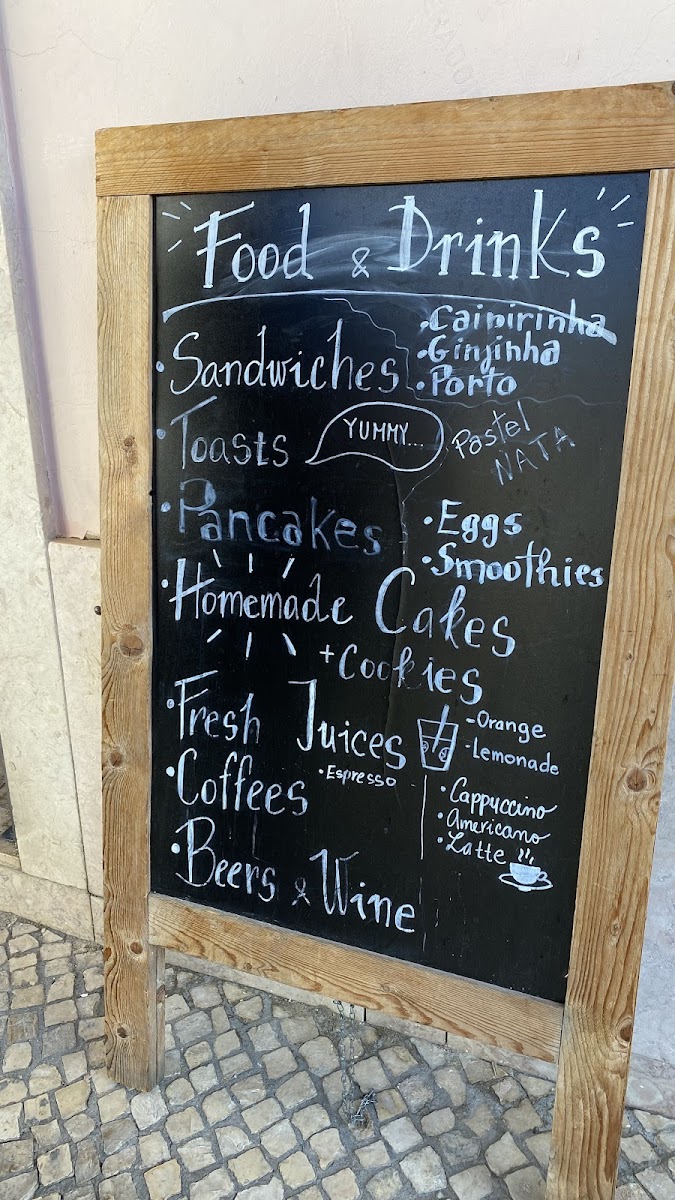 Food & Drinks
• Sandwiches
• Caipirinha
• Ginjinha
• Porto
• Toasts
YUMMY...
Pastel
NATA
• Pancakes
• Eggs
• Smoothies
• Homemade Cakes
+ Cookies
• Fresh Juices
- Orange
- Lemonade
• Espresso
• Coffees
• Cappuccino
• Americano
• Latte
• Beers & Wine